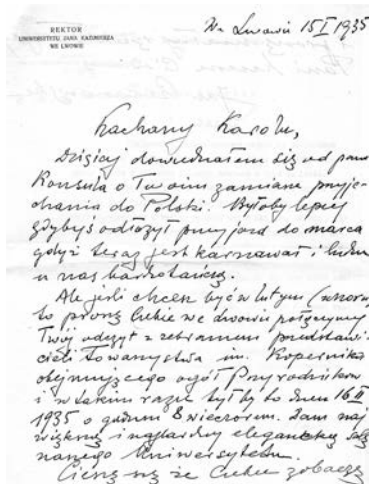 REKTOR
UNIWERSYTETU JANA KAZIMIERZA
WE LWOWIE
We Lwowie 15 I 1935
Kochany Karolu,
Dzisiaj dowiedziałem się od pana
Konsula o Twoim zamiarze przyje-
chania do Polski. Byłoby lepiej
gdybyś odłożył przyjazd do marca
gdyż teraz jest karnawał i ludzie
u nas bardzo tańczą.
Ale jeśli chcesz być w lutym
to proszę Ciebie we Lwowie połączymy
Twój odczyt z zebraniem przedstawi-
cieli Towarzystwa im. Kopernika
obejmującego ogół Przyrodników
i w takim razie byłby to dzień 16 II
1935 o godzin 8 wieczorem. Dam naj
większą i najbardziej elegancką salę
naszego Uniwersytetu.
Cieszę się że Ciebie zobaczę